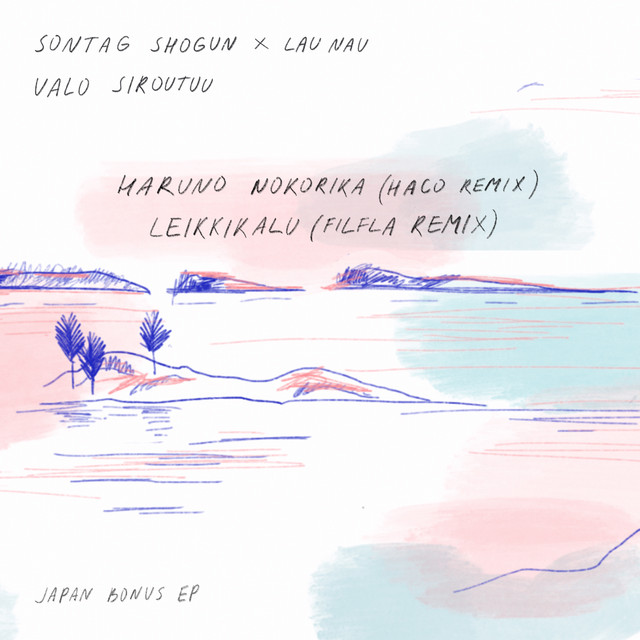 SONTAG SHOGUN × LAU NAU
VALO SIROUTUU
HARUNO NOKORIKA (HACO REMIX)
LEIKKIKALU (FILFLA REMIX)
JAPAN BONUS EP